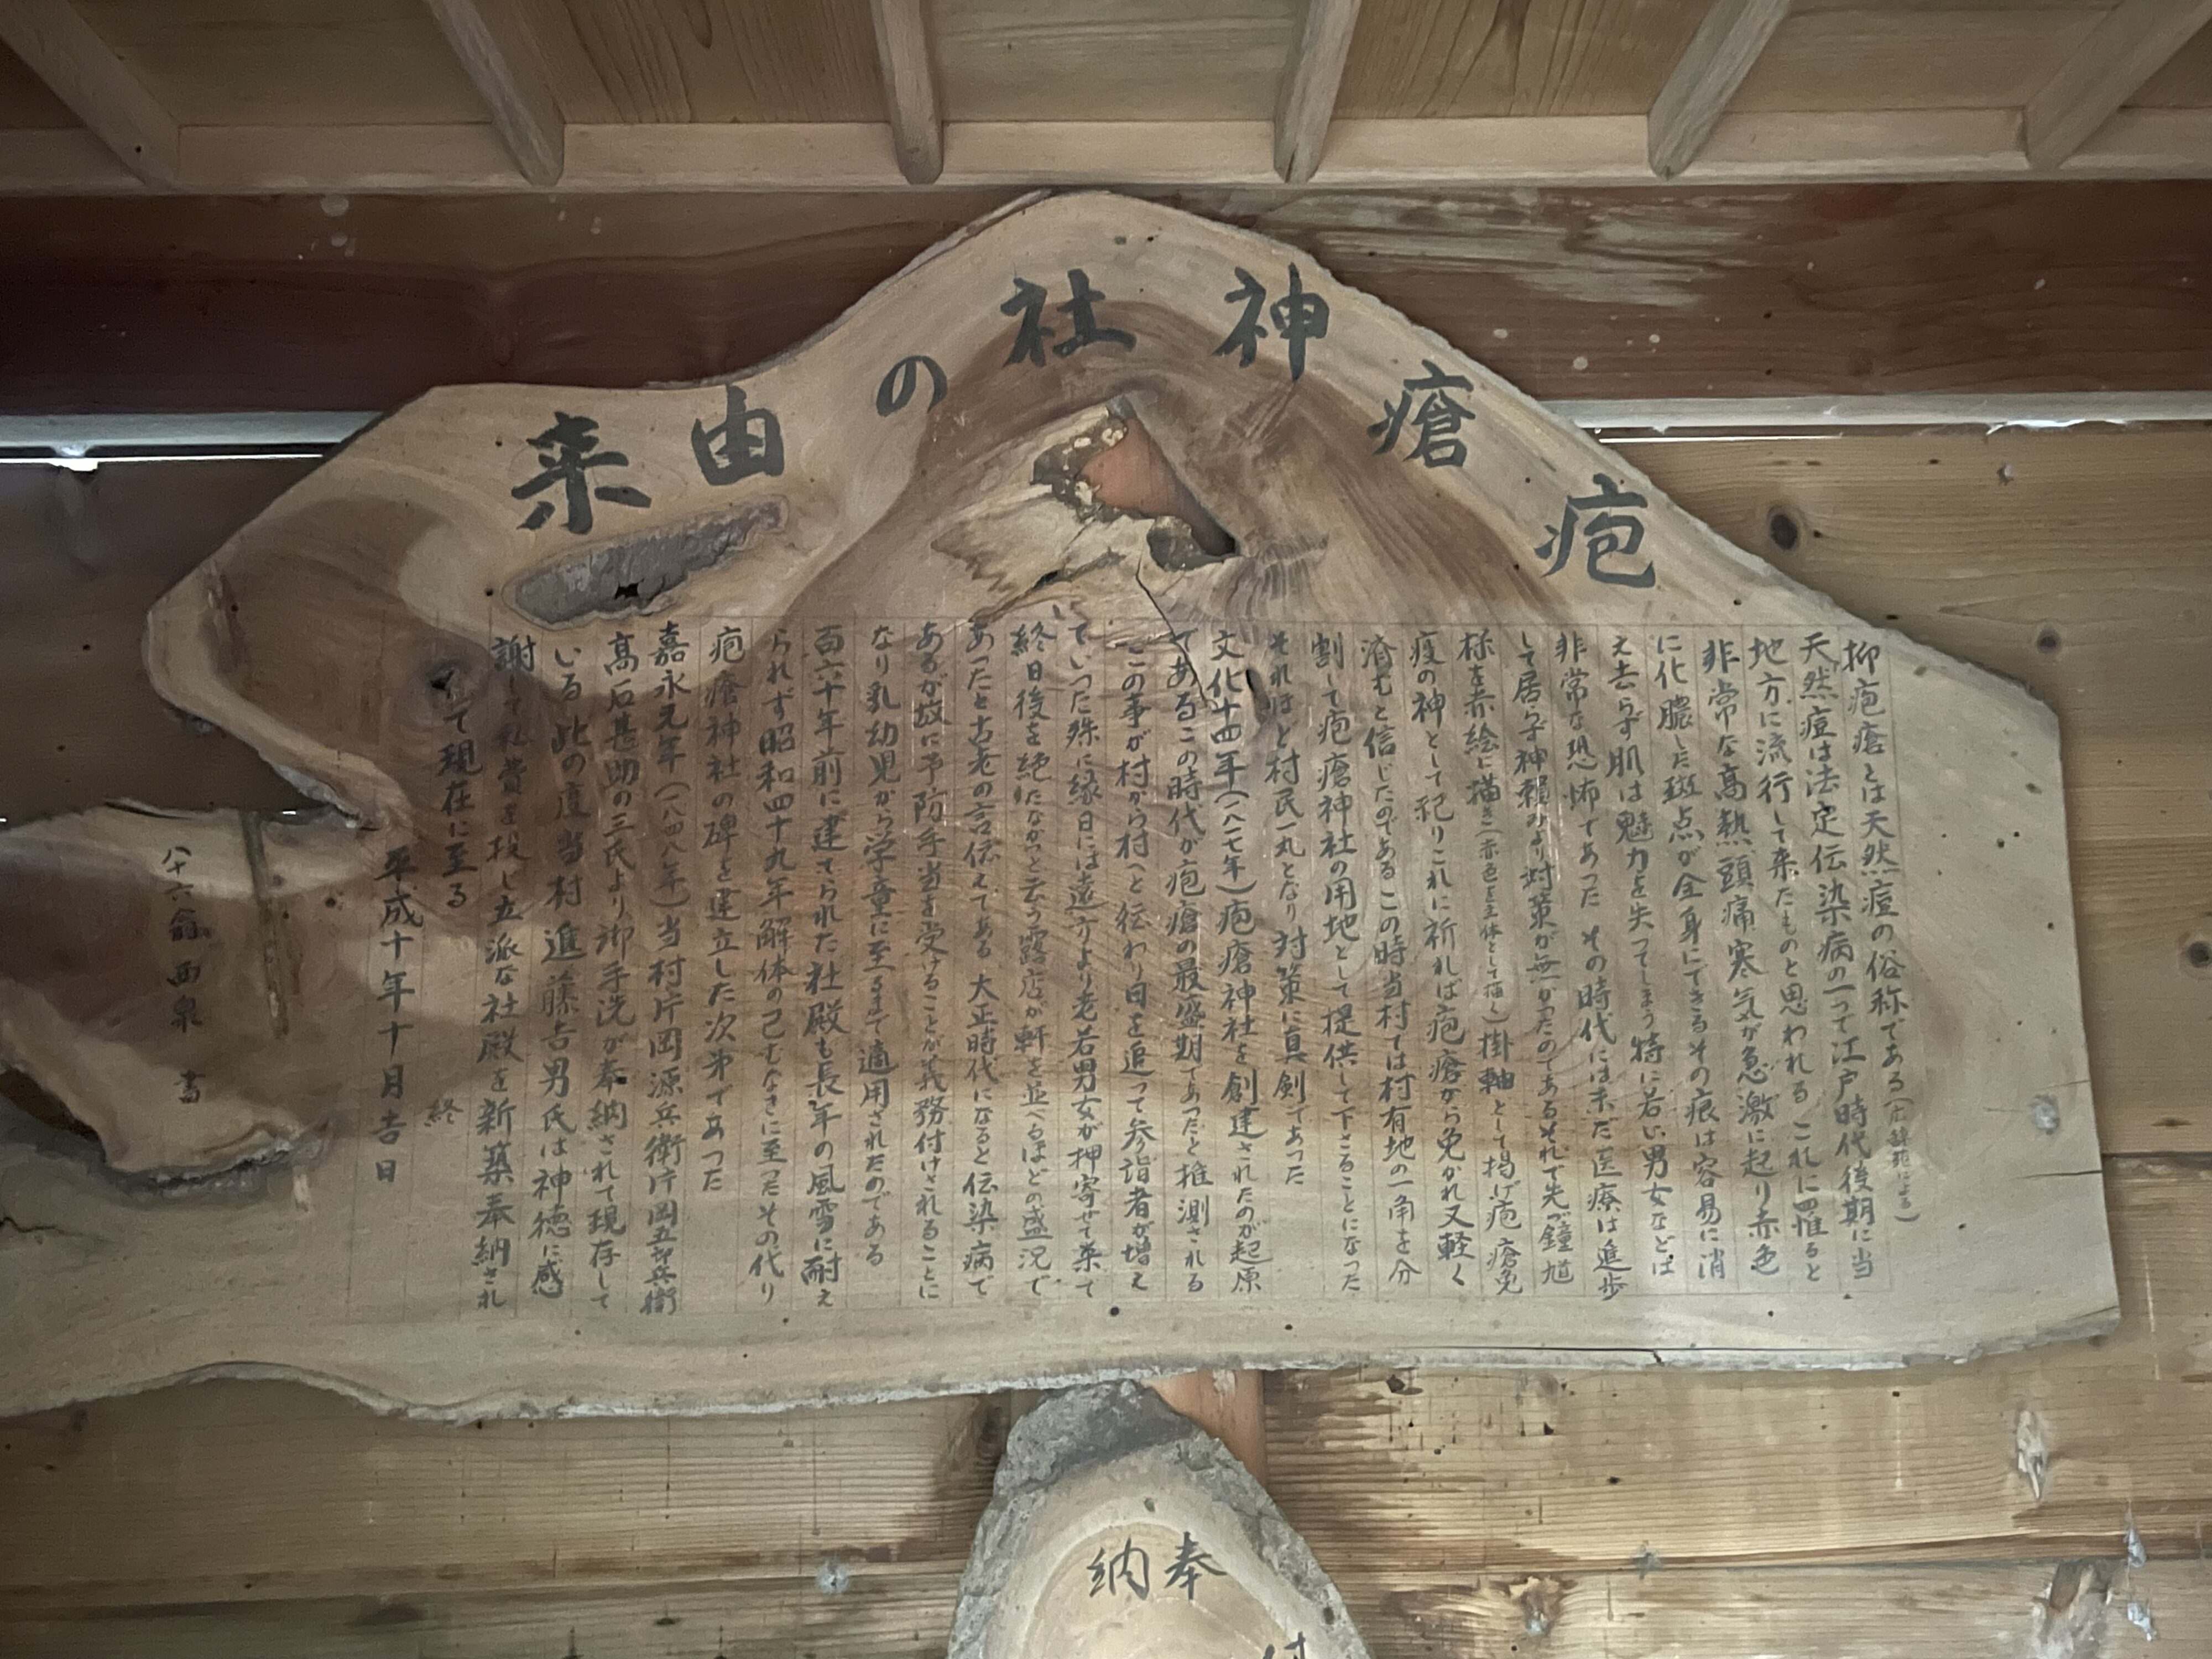 疱瘡神社の由来
抑疱瘡とは天然痘の俗称である(広辞苑による)
天然痘は法定伝染病の一つで江戸時代後期に当
地方に流行して来たものと思われる これに罹ると
非常な高熱頭痛寒気が急激に起り赤色
に化膿した斑点が全身にできるその痕は容易に消
え去らず肌は魅力を失ってしまう特に若い男女などは
非常な恐怖であった その時代には未だ医療は進歩
して居らず神頼みより対策が無かったのであるそれで先づ鐘馗
様を赤絵に描き(赤色を主体として描く)掛軸として掲げ疱瘡免
疫の神として祀りこれに祈れば疱瘡から免かれ又軽く
済むと信じたのであるこの時当村では村有地の一角を分
割して疱瘡神社の用地として提供して下さることになった
それほど村民一丸となり対策に真剣であった
文化十四年(一八一七年)疱瘡神社を創建されたのが起原
であるこの時代が疱瘡の最盛期であったと推測される
この事が村から村へと伝わり日を追って参詣者が増え
ていった殊に縁日には遠方より老若男女が押寄せて来て
終日後を絶たなかったと云う露店が軒を並べるほどの盛況で
あったと古老の言伝えである 大正時代になると伝染病で
あるが故に予防手当を受けることが義務付けされることに
なり乳幼児から学童に至るまで適用されたのである
百六十年前に建てられた社殿も長年の風雪に耐え
られず昭和四十九年解体の己むなきに至ったその代り
疱瘡神社の碑を建立した次第であった
嘉永元年(一八四八年)当村片岡源兵衛片岡五郎兵衛
高石甚助の三氏より御手洗が奉納されて現存して
いる此の度当村進藤吉男氏は神徳に感
謝して私費を投し立派な社殿を新築奉納され
て現在に至る
終
平成十年十月吉日
八十六翁 西泉 書
奉納